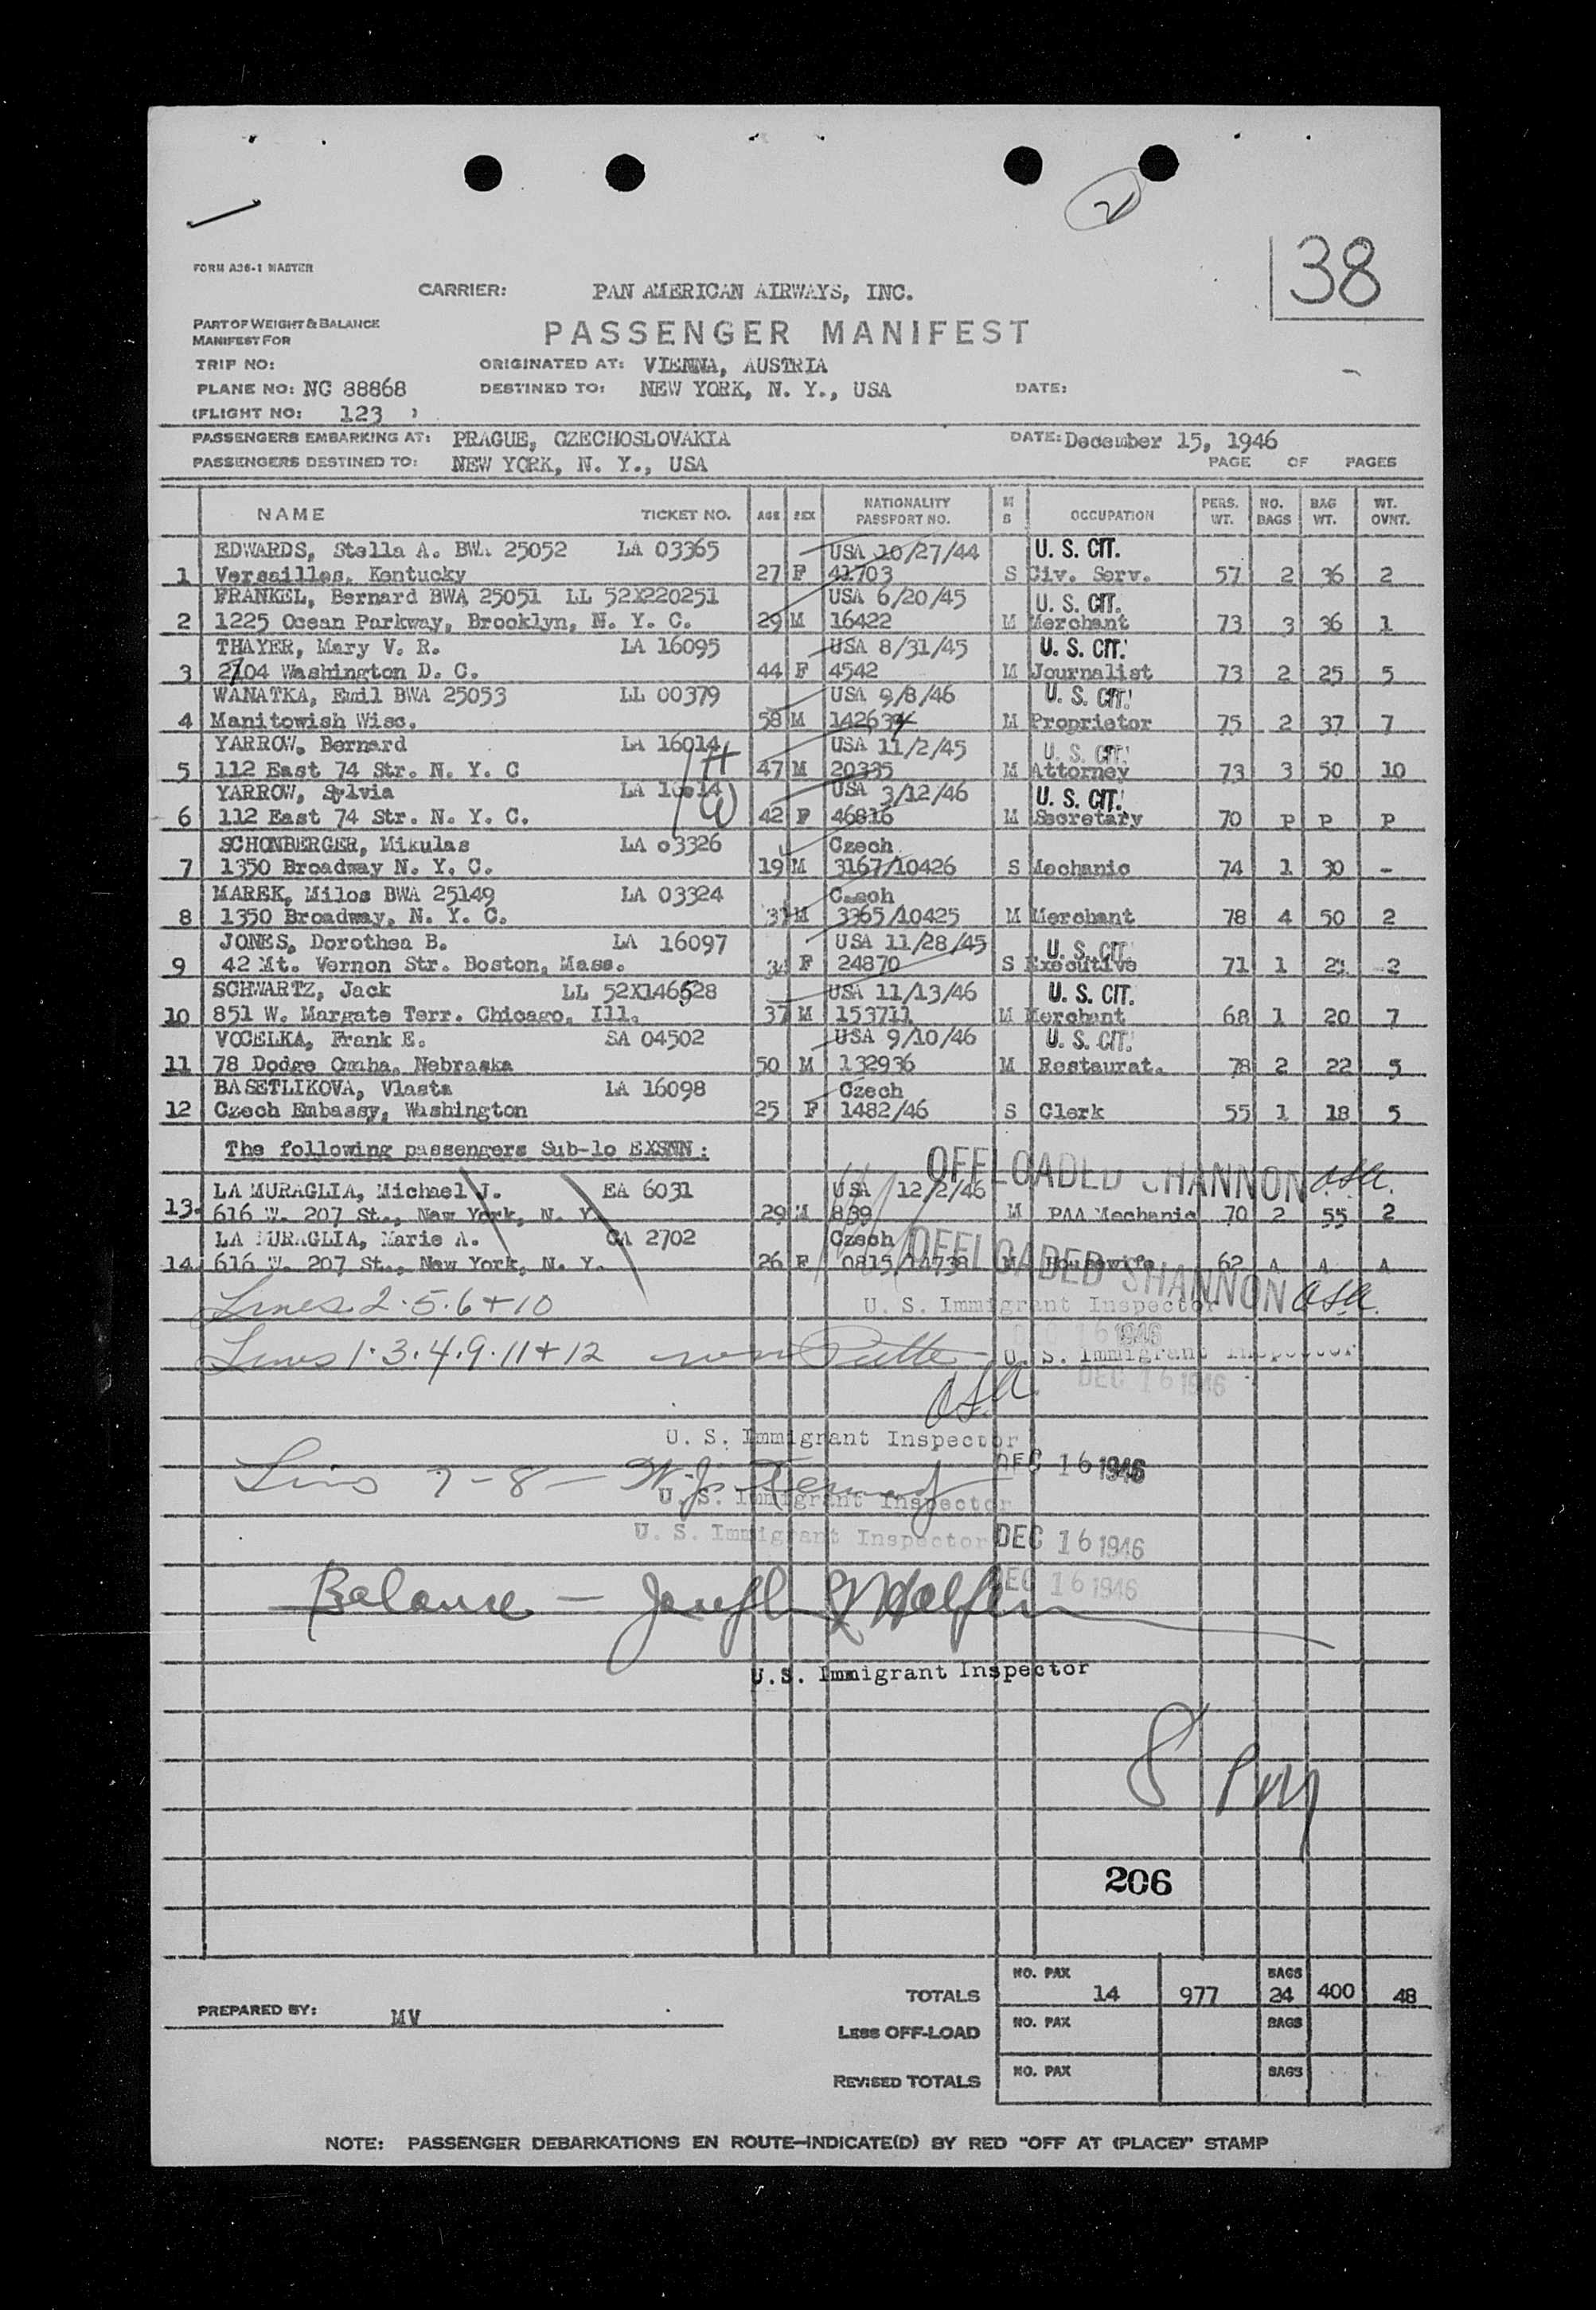 2
38
FORM A36-1 MASTER
CARRIER: PAN AMERICAN AIRWAYS, INC.
PART OF WEIGHT & BALANCE
MANIFEST FOR
PASSENGER MANIFEST
TRIP NO: ORIGINATED AT: VIENNA, AUSTRIA
PLANE NO: NC 88868 DESTINED TO: NEW YORK, N. Y., USA DATE:
(FLIGHT NO: 123 )
PASSENGERS EMBARKING AT: PRAGUE, CZECHOSLOVAKIA DATE: December 15, 1946
PASSENGERS DESTINED TO: NEW YORK, N. Y., USA PAGE OF PAGES
NAME TICKET NO. AGE SEX NATIONALITY PASSPORT NO. M S OCCUPATION PERS. WT. NO. BAGS BAG WT. WT. OVNT.
EDWARDS, Stella A. BWA 25052 LA 03365 USA 10/27/44 U. S. CIT.
1 Versailles, Kentucky 27 F 41703 S Civ. Serv. 57 2 36 2
FRANKEL, Bernard BWA 25051 LL 52X220251 USA 6/20/45 U. S. CIT.
2 1225 Ocean Parkway, Brooklyn, N. Y. C. 29 M 16422 M Merchant 73 3 36 1
THAYER, Mary V. R. LA 16095 USA 8/31/45 U. S. CIT.
3 2704 Washington D. C. 44 F 4542 M Journalist 73 2 25 5
WANATKA, Emil BWA 25053 LL 00379 USA 9/8/46 U. S. CIT.
4 Manitowish Wisc. 58 M 142634 M Proprietor 75 2 37 7
YARROW, Bernard LA 16014 USA 11/2/45 U. S. CIT.
5 112 East 74 Str. N. Y. C 47 M 20335 M Attorney 73 3 50 10
YARROW, Sylvia LA 16014 USA 3/12/46 U. S. CIT.
6 112 East 74 Str. N. Y. C. 42 F 46816 M Secretary 70 P P P
H
W
SCHONBERGER, Mikulas LA 03326 Czech
7 1350 Broadway N. Y. C. 19 M 3167/10426 S Mechanic 74 1 30 -
MAREK, Milos BWA 25149 LA 03324 Czech
8 1350 Broadway, N. Y. C. M 3365/10425 M Merchant 78 4 50 2
JONES, Dorothea B. LA 16097 USA 11/28/45 U. S. CIT.
9 42 Mt. Vernon Str. Boston, Mass. 34 F 24870 S Executive 71 1 2
SCHWARTZ, Jack LL 52X146628 USA 11/13/46 U. S. CIT.
10 851 W. Margate Terr. Chicago, Ill. 37 M 153711 M Merchant 68 1 20 7
VOCELKA, Frank E. SA 04502 USA 9/10/46 U. S. CIT.
11 78 Dodge Omaha, Nebraska 50 M 132936 M Restaurat. 78 2 22 5
BASETLIKOVA, Vlasta LA 16098 Czech
12 Czech Embassy, Washington 25 F 1482/46 S Clerk 55 1 18 5
The following passengers Sub-lo EXSNN:
OFFLOADED SHANNON
LA MURAGLIA, Michael J. EA 6031 USA 12/2/46
13. 616 W. 207 St., New York, N. Y. 29 M 839 M PAA Mechanic 70 2 55 2
LA MURAGLIA, Marie A. CA 2702 Czech
14. 616 W. 207 St., New York, N. Y. 26 F 0815/14738 M Housewife 62 A A A
OFFLOADED SHANNON
Lines 2.5.6+10
U. S. Immigrant Inspector
DEC 16 1946
Lines 1.3.4.9.11+12
U. S. Immigrant Inspector
DEC 16 1946
U. S. Immigrant Inspector
DEC 16 1946
Lines 7-8 -
U. S. Immigrant Inspector
U. S. Immigrant Inspector DEC 16 1946
DEC 16 1946
Balance - Joseph Halpern
U.S. Immigrant Inspector
8 PM
206
TOTALS NO. PAX 14 977 BAGS 24 400 48
PREPARED BY: MV
LESS OFF-LOAD NO. PAX BAGS
REVISED TOTALS NO. PAX BAGS
NOTE: PASSENGER DEBARKATIONS EN ROUTE—INDICATE(D) BY RED "OFF AT (PLACE)" STAMP